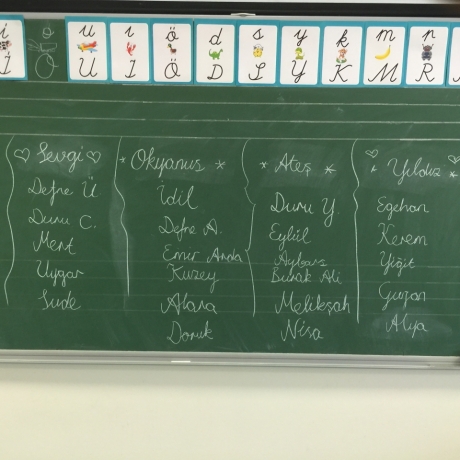 i u ı ö d s y k m r
İ U I Ö D S Y K M R
ö
Ö
Sevgi
Defne Ü
Duru C.
Mert
Uygar
Sude
* Okyanus *
İdil
Defne A.
Emir Arda
Kuzey
Alara
Doruk
* Ateş *
Duru Y.
Eylül
Aybars
Burak Ali
Melikşah
Nisa
* Yıldız *
Egehan
Kerem
Yiğit
Alya